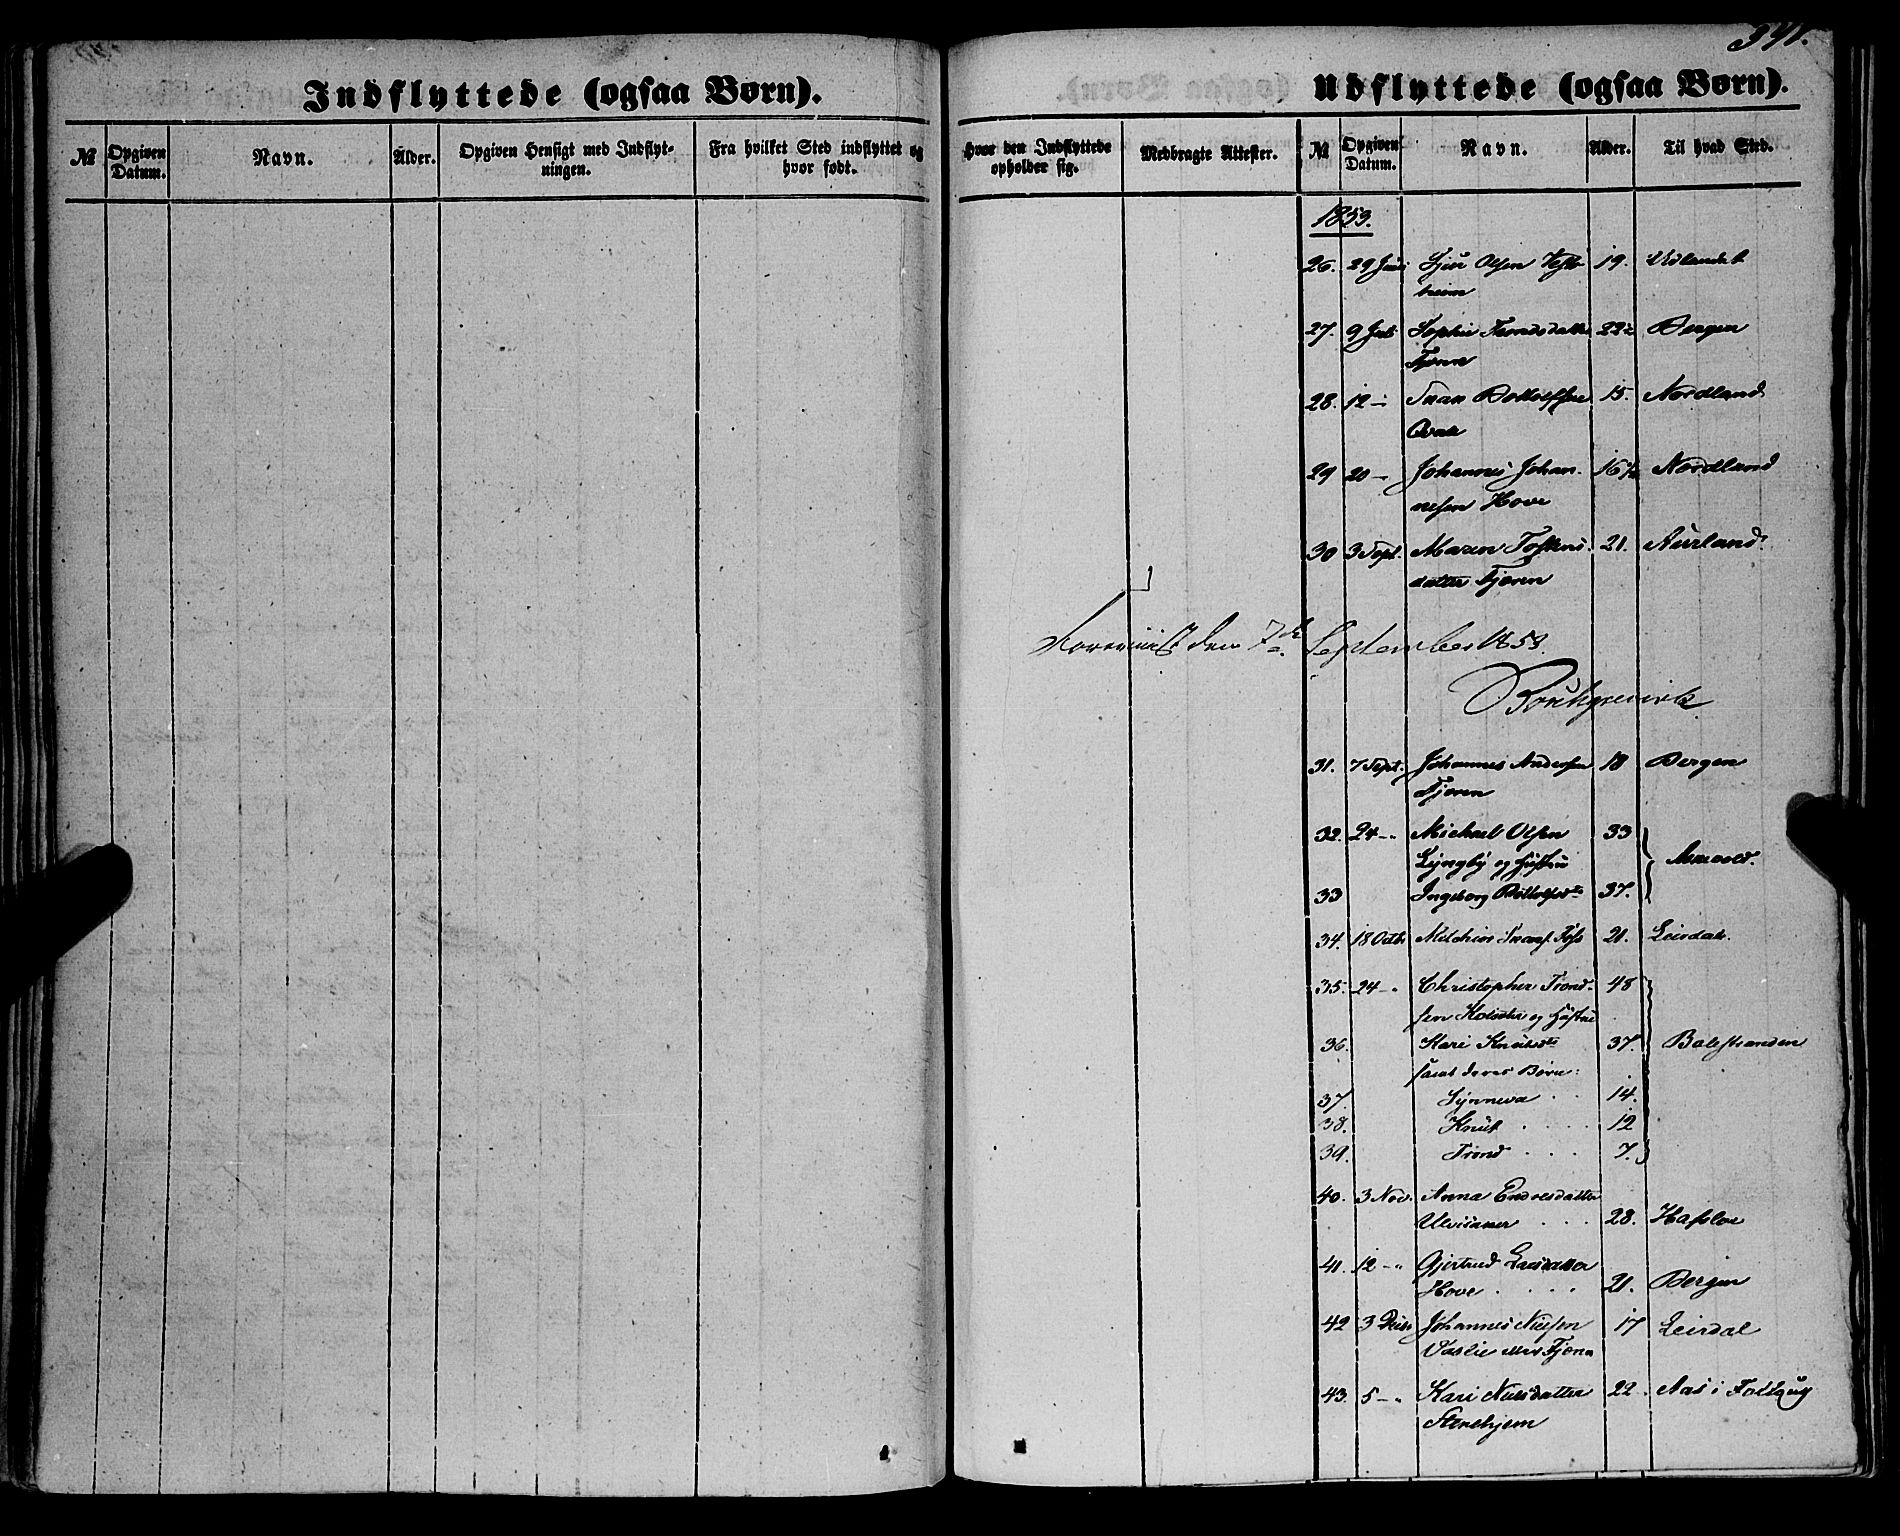 341.
Indflyttede (ogsaa Børn).
№
Opgiven Datum.
Navn.
Alder.
Opgiven Hensigt med Indflyt-
ningen.
Fra hvilket Sted indflyttet og
hvor født.
Udflyttede (ogsaa Børn).
Hvor den Indflyttede
opholder sig.
Medbragte Attester.
№
Opgiven Datum.
Navn.
Alder.
Til hvad Sted.
1853.
26. 29 Juni Sjur Olsen 19. Udlandet
heim
27. 9 Juli Sophie Trondsdatter 22½ Bergen
Tjønn
28. 12 - 15. Nordland
29 20 - Johannes Johan- 16½ Nordland
nesen Hove
30 3 Sept. Maren Tostens- 21. Aurland
datter Tjønn
den 7de September 1853.
31. 7 Sept. Johannes Andersen 18 Bergen
Tjønn
32. 24 - " Michael Olsen 33
Lyngby og Hustru
33 Ingeborg 37.
34. 18 Octb. Melchior 21. Leirdal.
35. 24 - " Christopher Trond- 48
sen og Hustru
36. Kari Knudsdt. 37. Balestranden
samt deres Børn:
37. Synneva 14.
38. Knut 12
39. Trond 7.
40. 3 Nov. Anna Endresdatter
28. Hafslo
41. 12 - " Gjertrud Larsdatter
Hove 21. Bergen
42 3 Decb. Johannes Nielsen 17 Leirdal
eller Tjønn
43. 5 - " Kari Nielsdatter 22. Aas i
Stenehjem